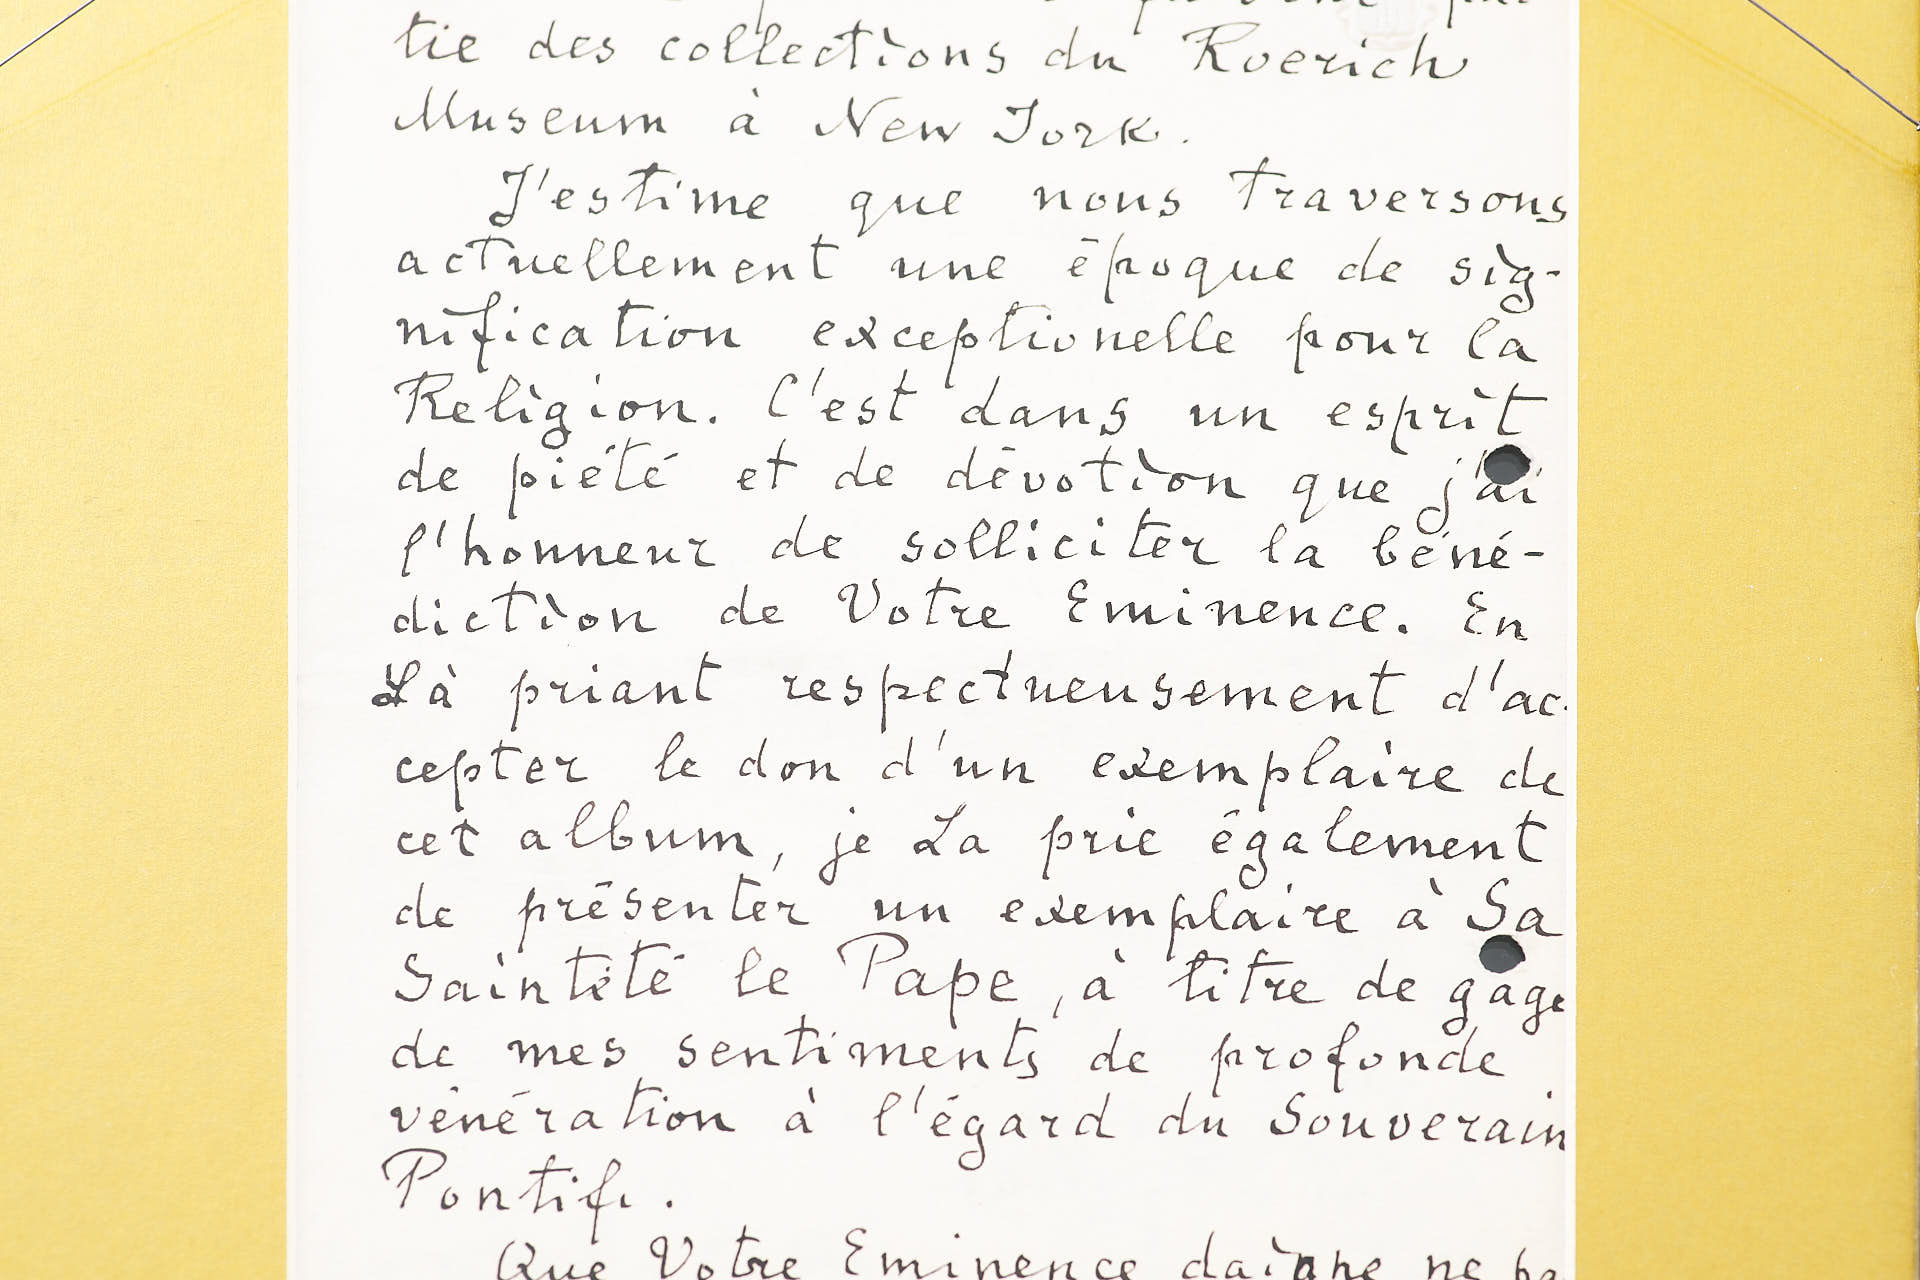 tie des collections du Roerich
Museum à New York.
J'estime que nous traversons
actuellement une époque de sig-
nification exceptionelle pour la
Religion. C'est dans un esprit
de piété et de dévotion que j'ai
l'honneur de solliciter la béné-
diction de Votre Eminence. En
La priant respectueusement d'ac-
cepter le don d'un exemplaire de
cet album, je La prie également
de présenter un exemplaire à Sa
Sainteté le Pape, à titre de gage
de mes sentiments de profonde
vénération à l'égard du Souverain
Pontife.
Que Votre Eminence daigne ne pa